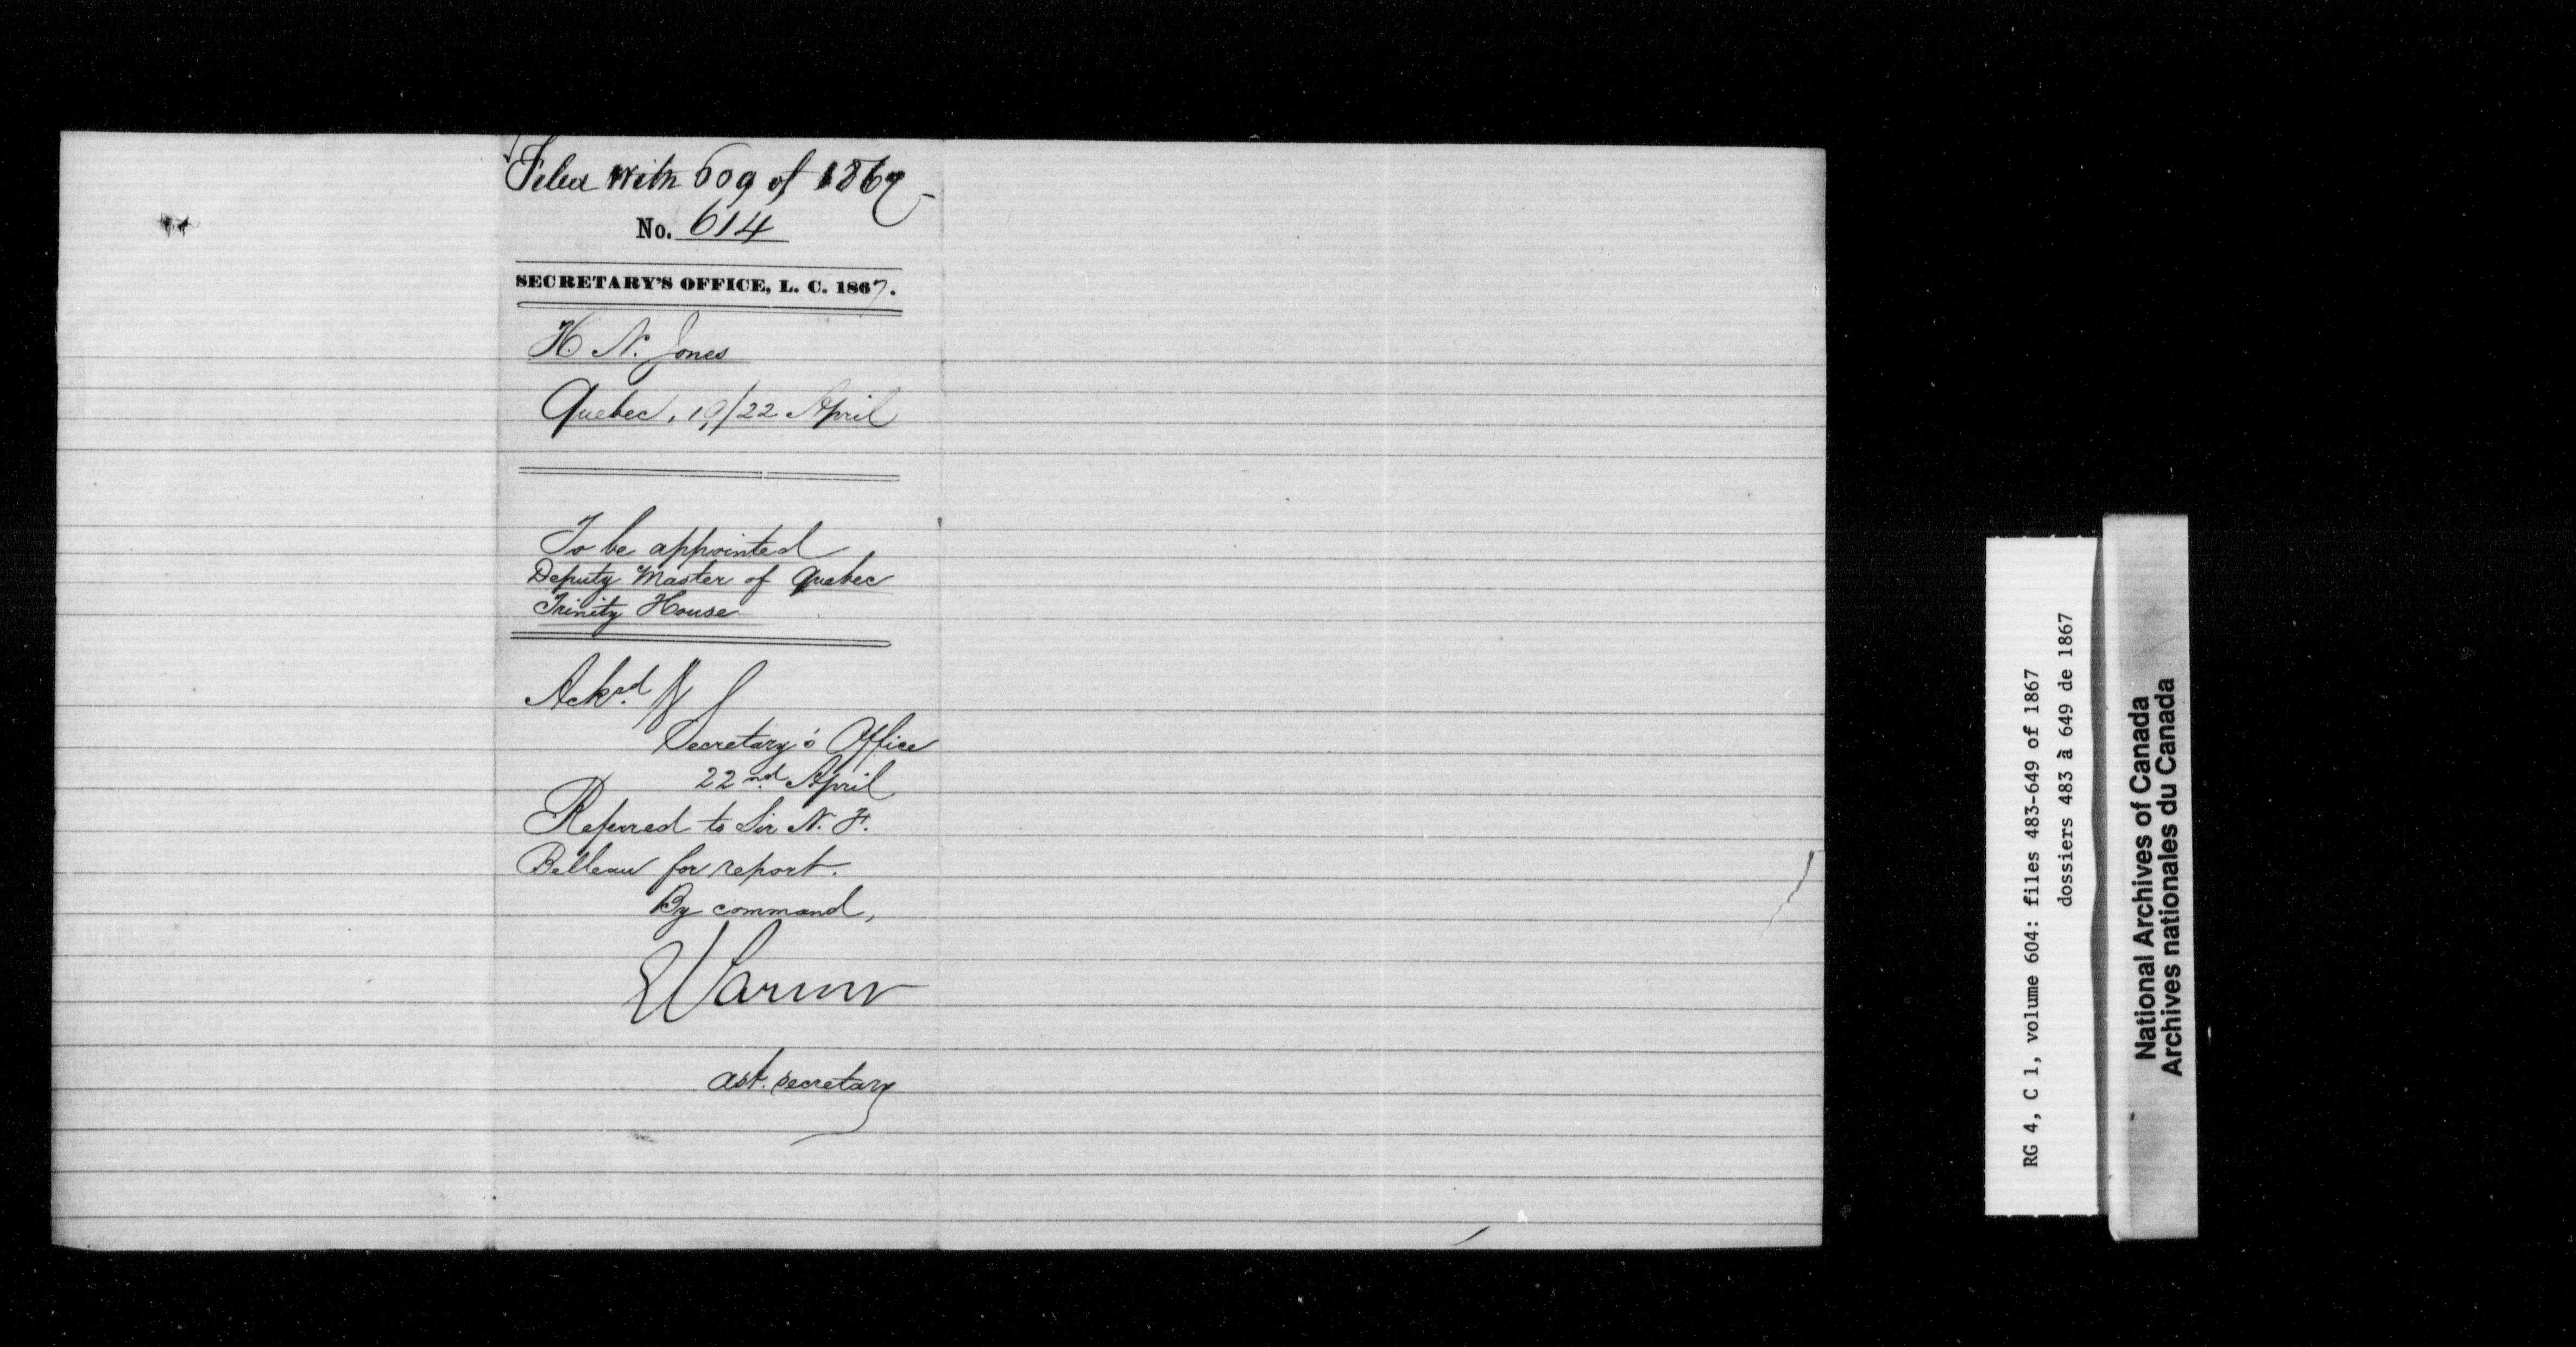 Filed with 609 of 1867
No. 614
SECRETARY'S OFFICE, L. C. 1867.
H. N. Jones
Quebec, 19/22 April
To be appointed
Deputy Master of Quebec
Trinity House
Ackd.
Secretary's Office
22nd April
Referred to Sir N. F.
Belleau for report.
By command,
ast. secretary
RG 4, C 1, volume 604: files 483-649 of 1867
dossiers 483 à 649 de 1867
National Archives of Canada
Archives nationales du Canada